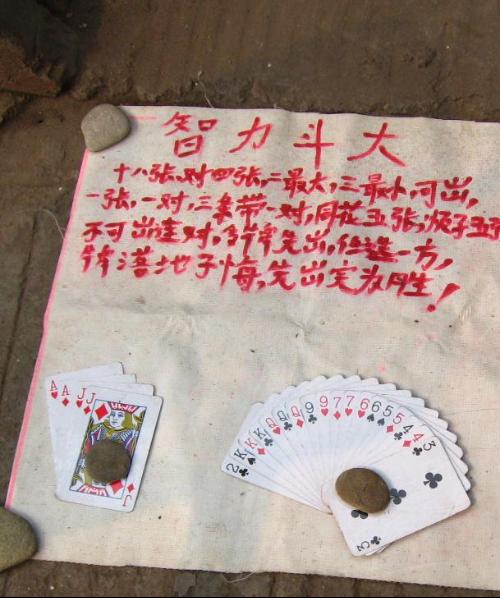 智力斗大
十八张对四张,二最大,三最小,可出,
一张,一对,三条带一对,同花五张,顺子五
不可出连对,多牌先出,任选一方,
牌落地不悔,先出完为胜!
A A J J
J
2 K K Q Q Q 9 9 7 7 6 6 5 5 4 4 3
3